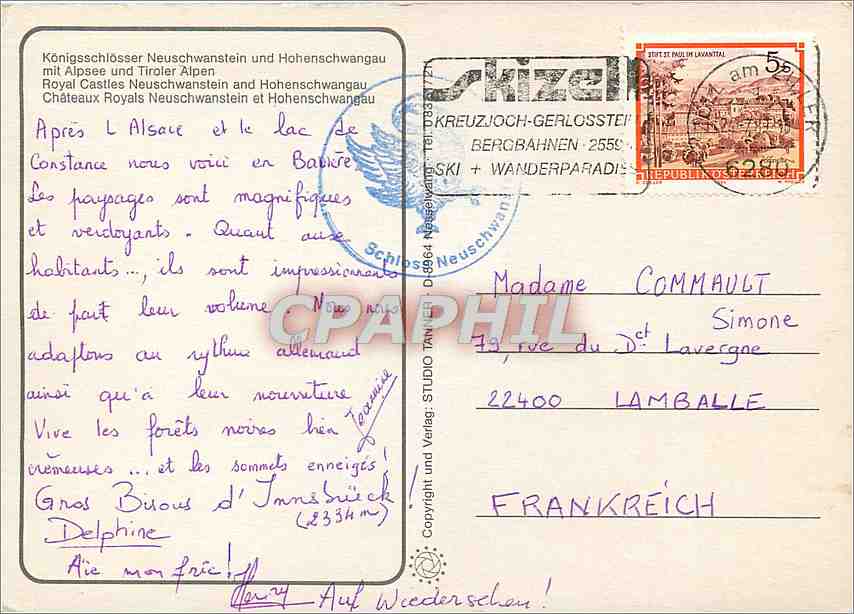 Königsschlösser Neuschwanstein und Hohenschwangau
mit Alpsee und Tiroler Alpen
Royal Castles Neuschwanstein and Hohenschwangau
Châteaux Royals Neuschwanstein et Hohenschwangau
Après L Alsace et le lac de
Constance nous voici en Bavière.
Les paysages sont magnifiques
et verdoyants. Quant aux
habitants..., ils sont impressionnants
de part leur volume. Nous nous
adaptons au rythme allemand
ainsi qu'à leur nourriture
Vive les forêts noires bien
crémeuses ... et les sommets enneigés!
Gros Bisous d'Innsbrück!
(2334m)
Delphine
Aïe mon fric!
Henry Auf Wiedersehen!
Schloss Neuschwans
Copyright und Verlag: STUDIO TANNER D-8964 Nesselwang
skizel
KREUZJOCH-GERLOSSTEI
BERGBAHNEN · 2559
SKI + WANDERPARADIS
STIFT ST. PAUL IM LAVANTTAL
5s
REPUBLIK ÖSTERREICH
am ZILLER
6280
Madame COMMAULT
Simone
79, rue du Dct Lavergne
22400 LAMBALLE
FRANKREICH
CPAPHIL